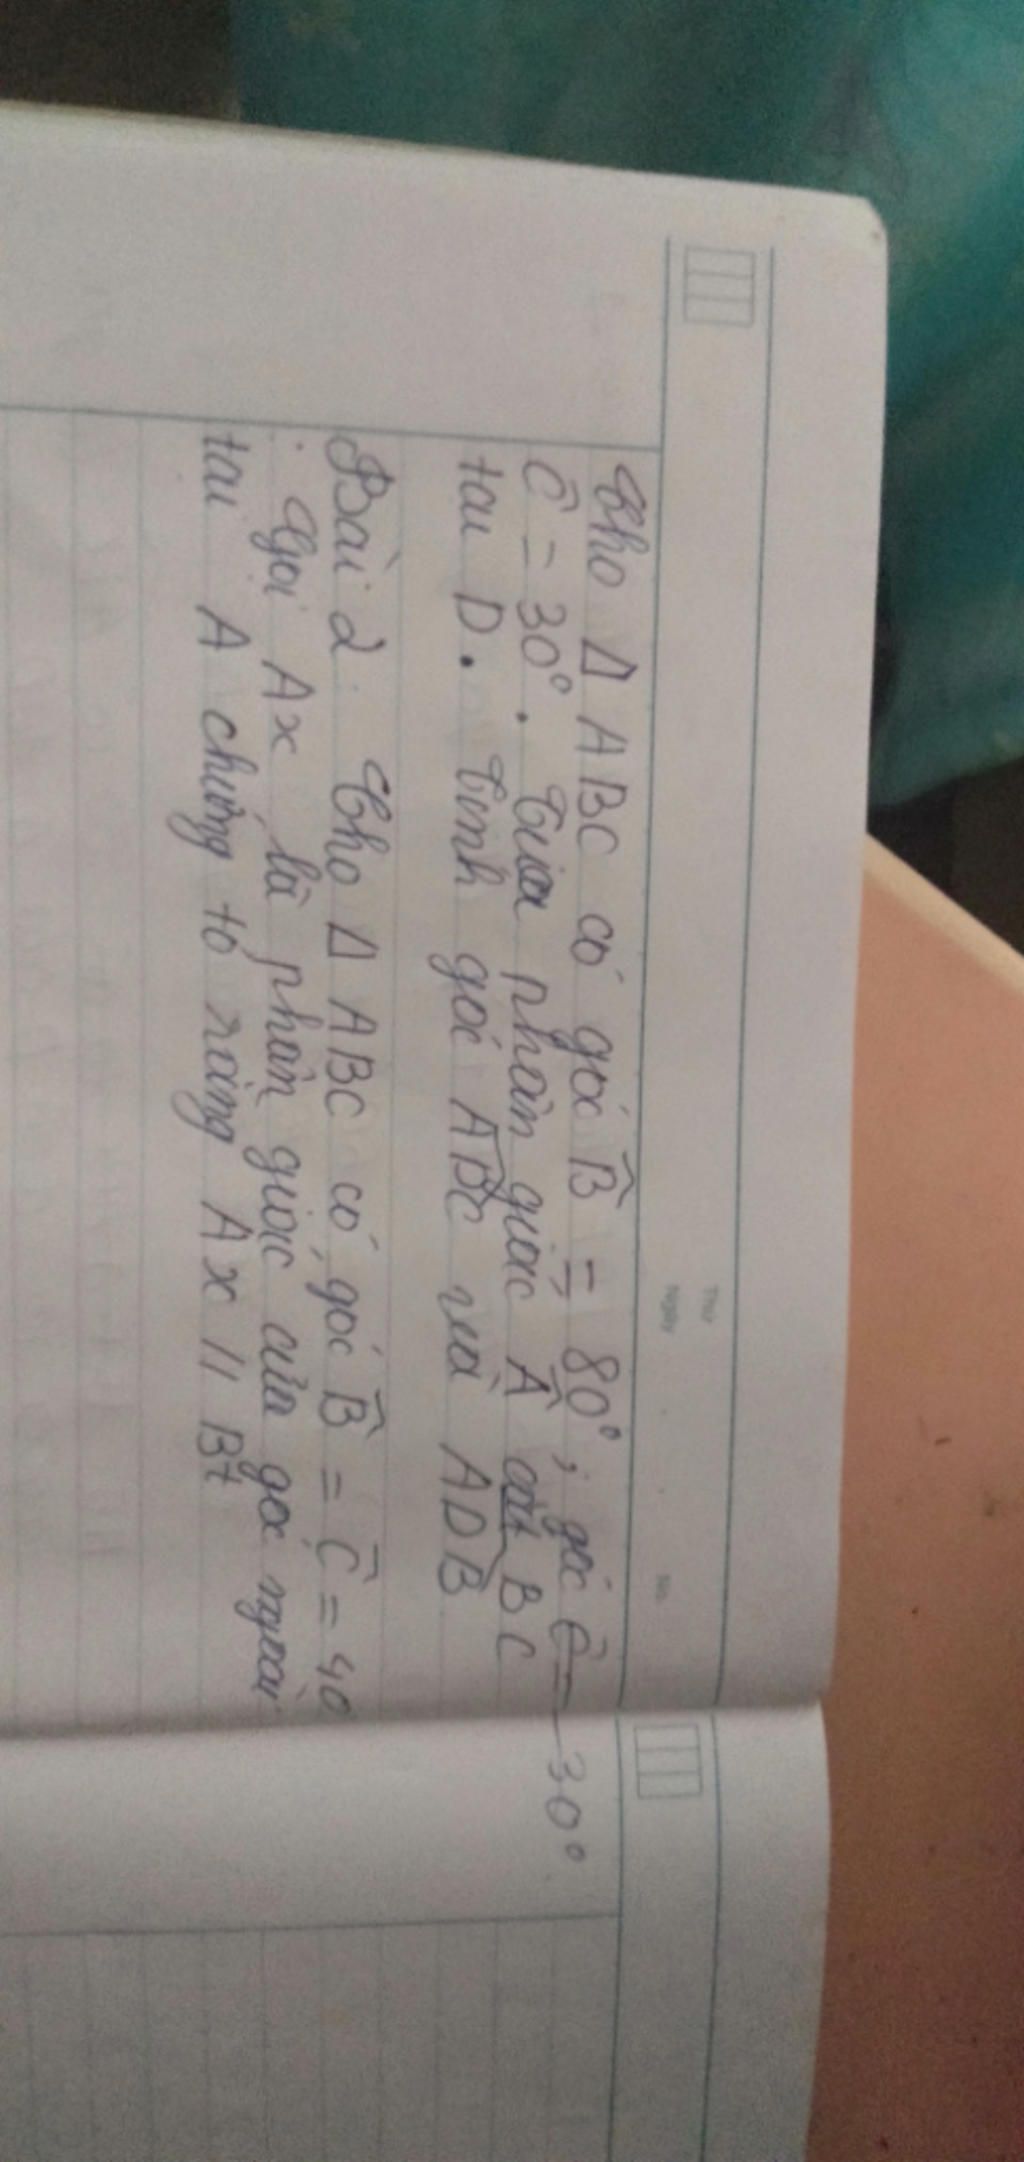 Thứ
Ngày
No.
Cho Δ ABC có góc B̂ = 80°, góc Ĉ = 30°
Ĉ = 30°. Tia phân giác  cắt BC
tại D. Tính góc ABC và ADB
Bài 2. Cho Δ ABC có góc B̂ = Ĉ = 40
. Gọi Ax là phân giác của góc ngoài
tại A chứng tỏ rằng Ax // B